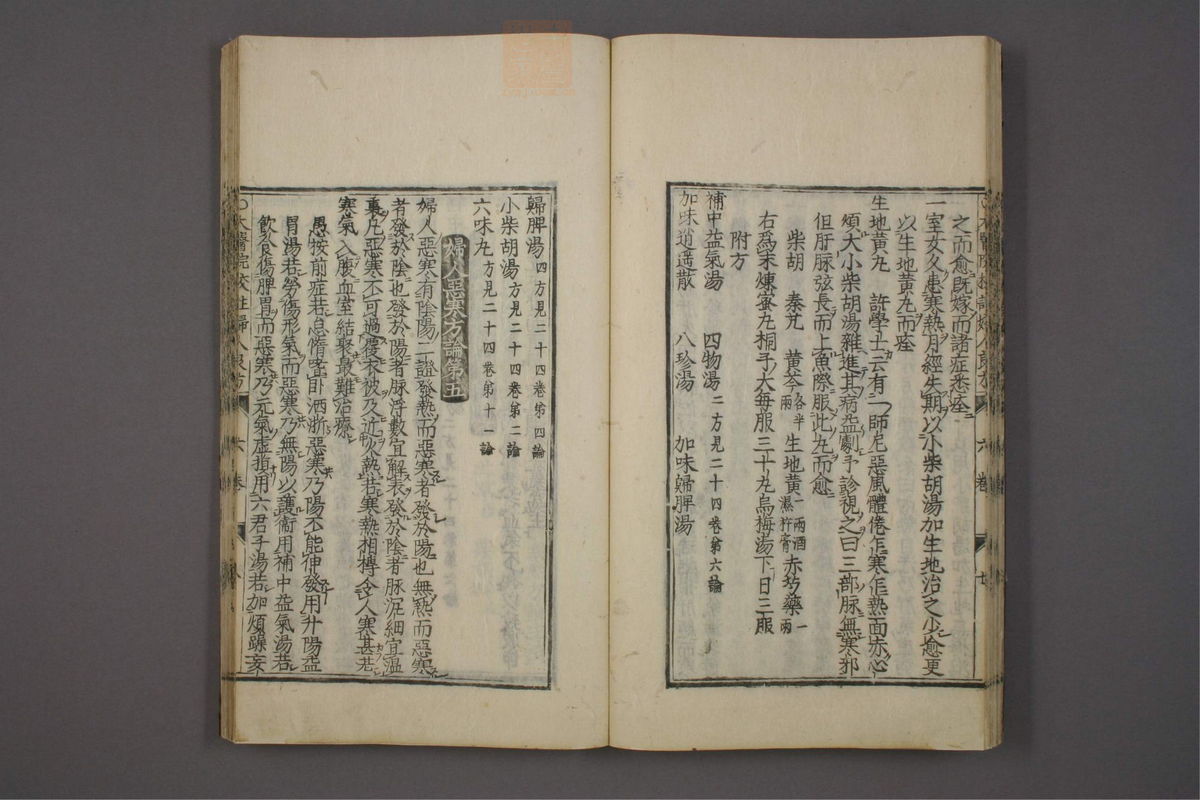 之而愈既嫁而諸症悉痊
一室女久患寒熱月經失期以小柴胡湯加生地治之少愈更
以生地黃丸而痊
生地黃丸　許學士云有一師尼惡風體倦乍寒乍熱面赤心
煩大小柴胡湯雜進其病益劇予診視之曰三部脉無寒邪
但肝脉弦長而上魚際服此丸而愈
柴胡　秦艽　黃芩各半兩　生地黃一兩酒濕杵膏　赤芍藥一兩
右爲末煉蜜丸桐子大每服三十丸烏梅湯下日三服
附方
補中益氣湯　四物湯二方見二十四卷第六論
加味逍遥散　八珍湯　加味歸脾湯
六卷　七
歸脾湯四方見二十四卷第四論
小柴胡湯方見二十四卷第二論
六味丸方見二十四卷第十一論
婦人惡寒方論第五
婦人惡寒有陰陽二證發熱而惡寒者發於陽也無熱而惡寒
者發於陰也發於陽者脉浮數宜解表發於陰者脉沉細宜溫
裏凡惡寒不可過覆衣被乃近火熱若寒熱相搏令人寒甚若
寒氣入腹血室結聚最難治療
愚按前症若怠惰嗜卧洒淅惡寒乃陽不能伸發用升陽益
胃湯若勞傷形氣而惡寒乃無陽以護衛用補中益氣湯若
飲食傷脾胃而惡寒乃元氣虛損用六君子湯若加煩躁妄
太醫院校註婦人良方　六卷